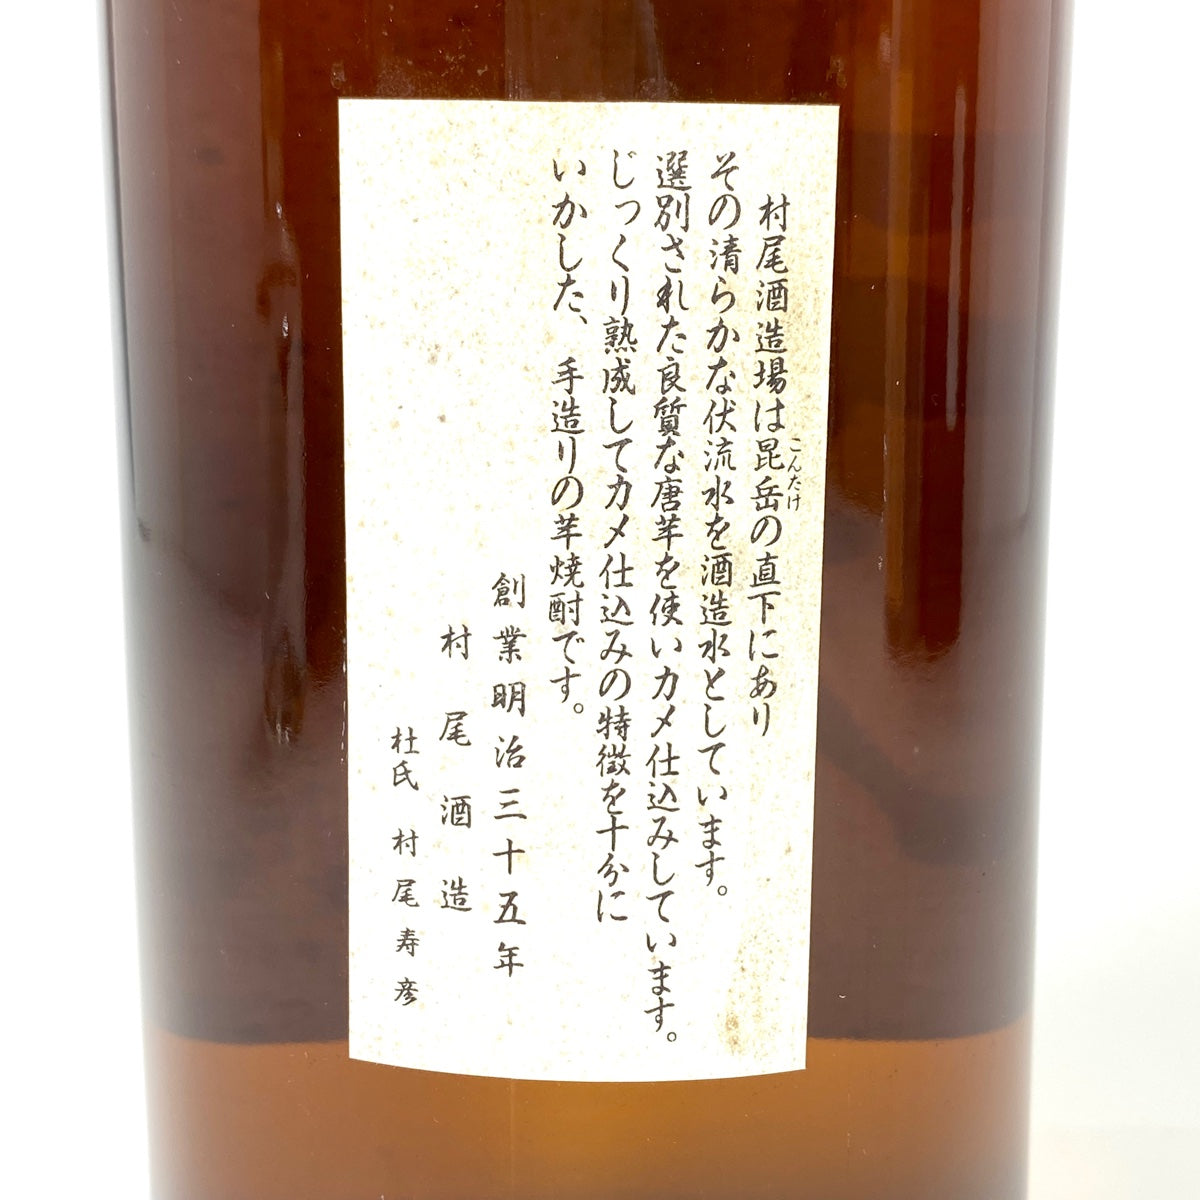 村尾酒造場は昆岳の直下にあり
こんたけ
その清らかな伏流水を酒造水としています。
選別された良質な唐芋を使いカメ仕込みしています。
じっくり熟成してカメ仕込みの特徴を十分に
いかした、手造りの芋焼酎です。
創業明治三十五年
村尾酒造
杜氏 村尾寿彦